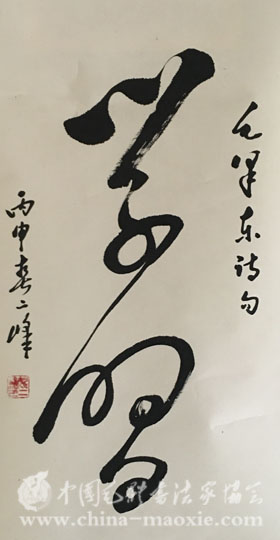 毛泽东诗句
学习
丙申春二峰
中国毛体书法家协会
www.china-maoxie.com